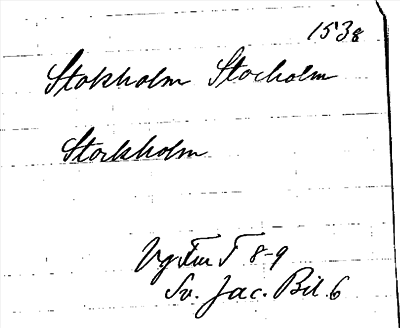 1538
Stokholm Stocholm
Stockholm
Vg Fur T 8-9
Sv. Jac. Bil. 6